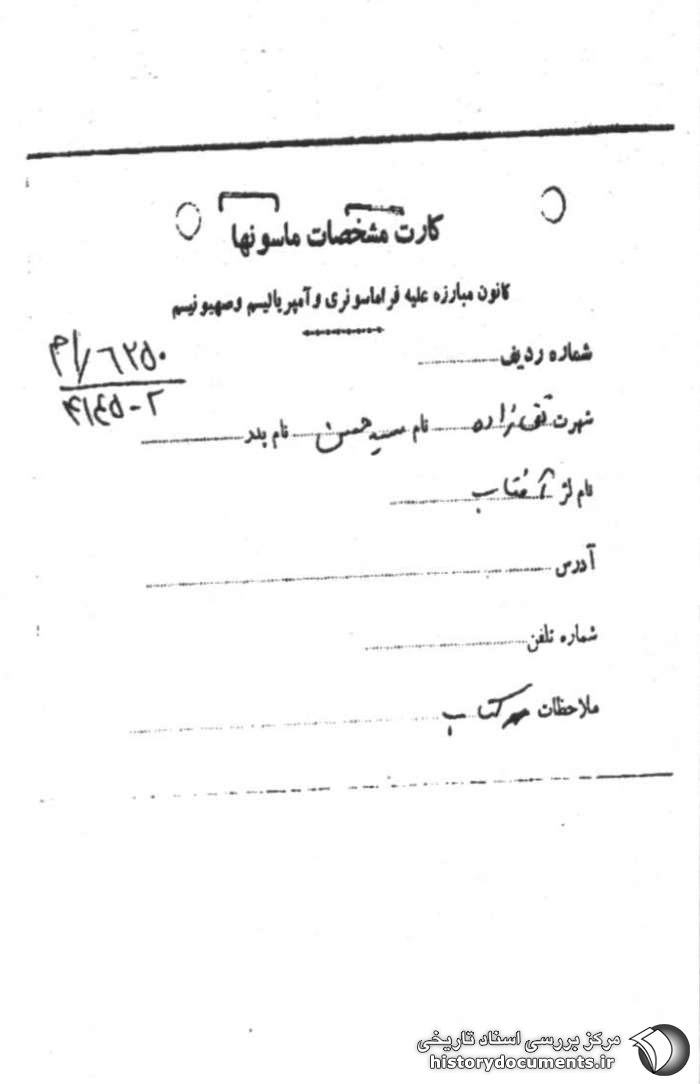 کارت مشخصات ماسونها
کانون مبارزه علیه فراماسونری و آمپریالیسم وصهیونیسم
شماره ردیف
۶۲۵۰/م ا
۲-۴۱۴۵
شهرت تقی زاده نام سید حسن نام پدر
نام لژ آفتاب
آدرس
شماره تلفن
ملاحظات کتاب
مرکز بررسی اسناد تاریخی
historydocuments.ir